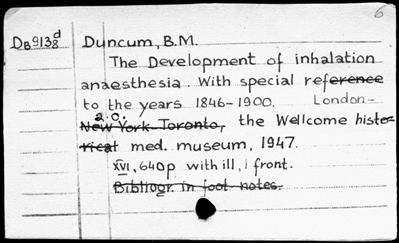 6
DB913d8 Duncum, B.M.
The Development of inhalation
anaesthesia. With special reference
to the years 1846-1900. London-
a.o.
New York-Toronto, the Wellcome histo-
rical med. museum, 1947.
XVI, 640p with ill, 1 front.
Bibliogr. in foot-notes.